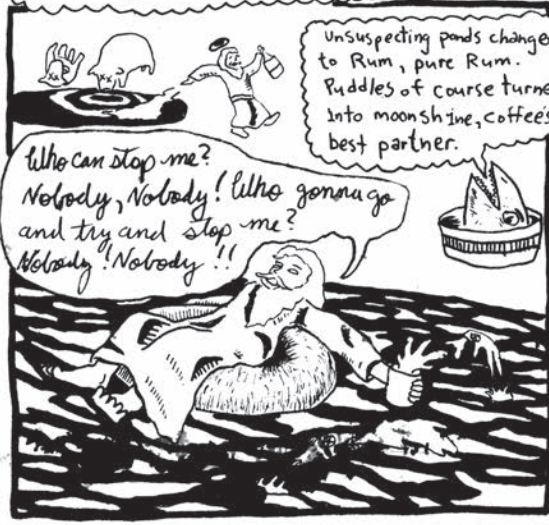 Unsuspecting ponds change
to Rum, pure Rum.
Puddles of course turne
Into moonshine, coffee's
best partner.
Who can stop me?
Nobody, Nobody! Who gonna go
and try and stop me?
Nobody! Nobody!!